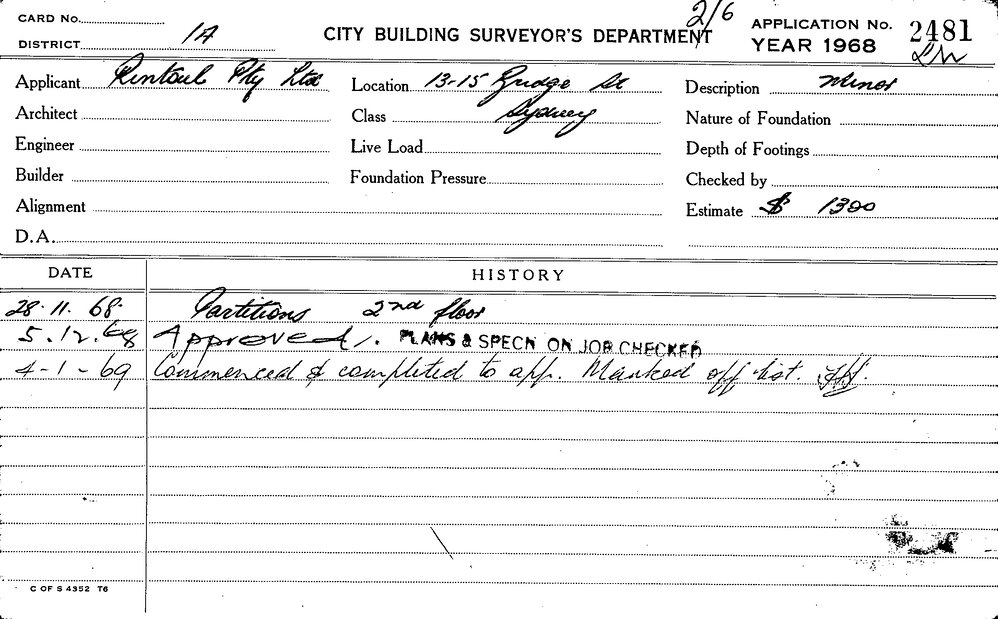 CARD No.
2/6
APPLICATION No. 2481
DISTRICT 1A
CITY BUILDING SURVEYOR'S DEPARTMENT
YEAR 1968
Applicant Rintoul Pty Ltd
Location 13-15 Bridge St
Description Minor
Architect
Class Sydney
Nature of Foundation
Engineer
Live Load
Depth of Footings
Builder
Foundation Pressure
Checked by
Alignment
Estimate $ 1300
D.A.
DATE HISTORY
28.11.68 Partitions 2nd floor
5.12.68 Approved. PLANS & SPECN ON JOB CHECKED
4-1-69 Commenced & completed to app. Marked off list.
C OF S 4352 T6